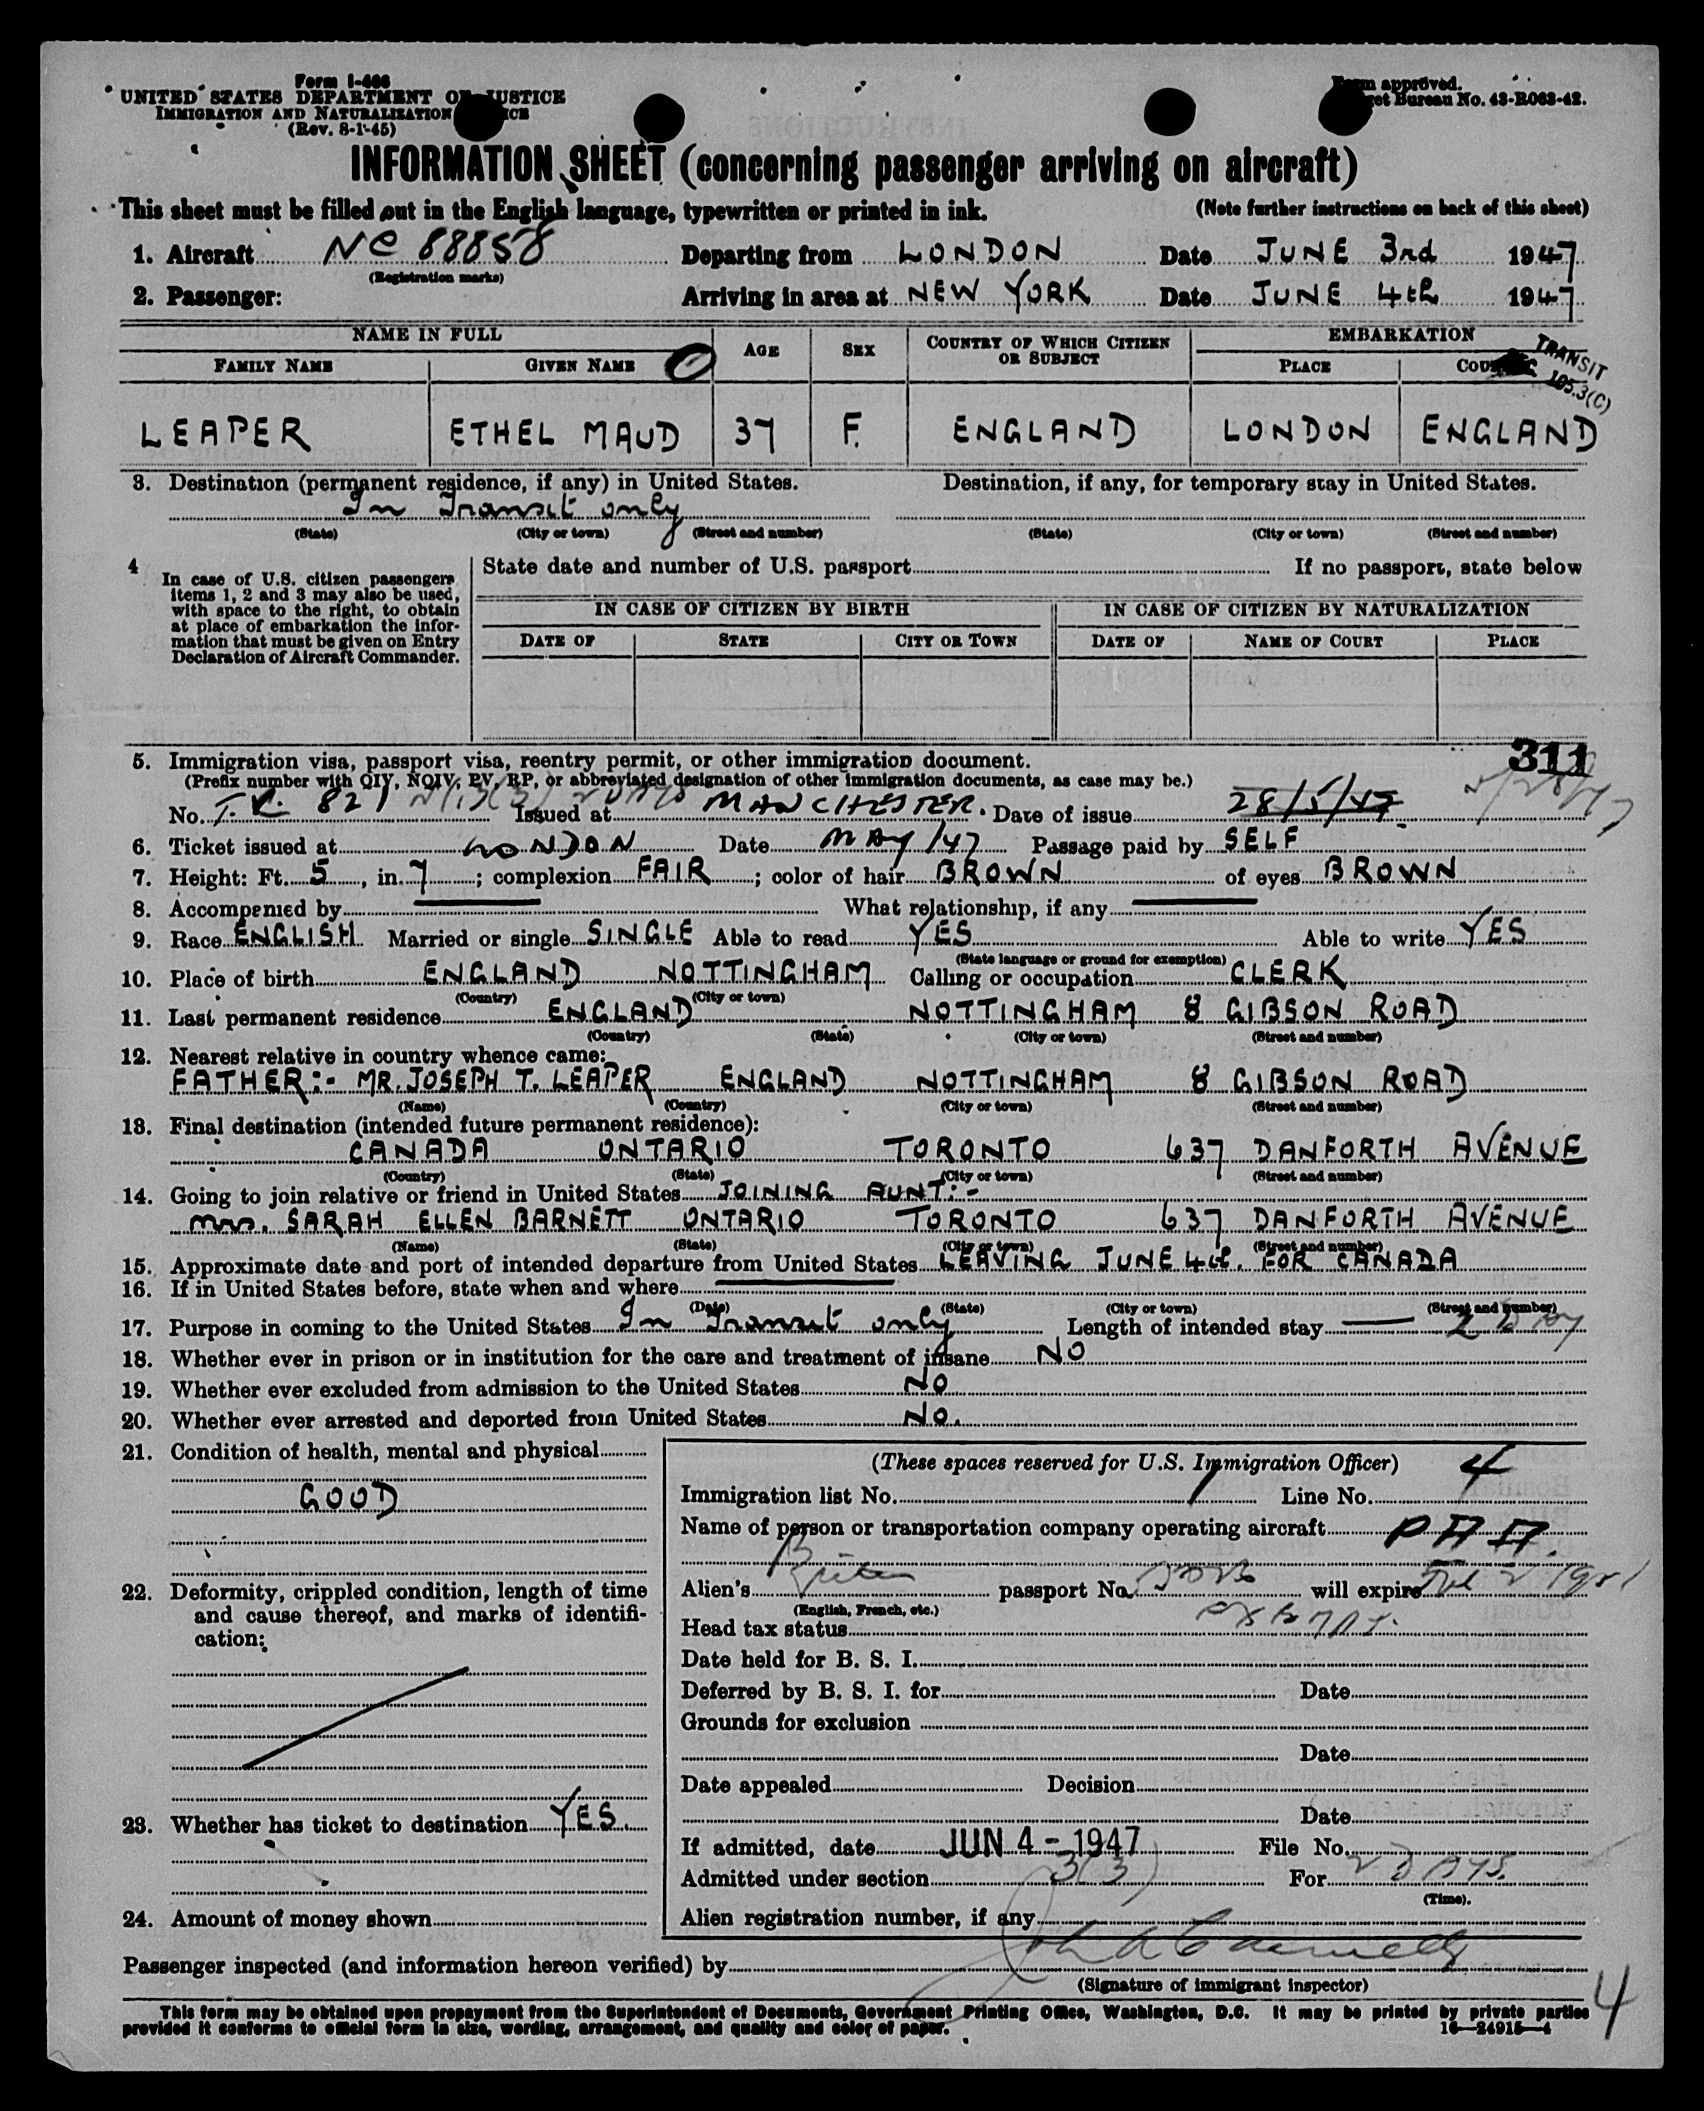 Form I-466
UNITED STATES DEPARTMENT OF JUSTICE
IMMIGRATION AND NATURALIZATION SERVICE
(Rev. 8-1-45)
Form approved.
Budget Bureau No. 43-R063-42.
INFORMATION SHEET (concerning passenger arriving on aircraft)
This sheet must be filled out in the English language, typewritten or printed in ink. (Note further instructions on back of this sheet)
1. Aircraft NC 88858 Departing from LONDON Date JUNE 3rd 1947
(Registration marks)
2. Passenger: Arriving in area at NEW YORK Date JUNE 4th 1947
NAME IN FULL AGE SEX COUNTRY OF WHICH CITIZEN OR SUBJECT EMBARKATION
FAMILY NAME GIVEN NAME PLACE
TRANSIT
105.3(C)
LEAPER ETHEL MAUD 37 F. ENGLAND LONDON ENGLAND
3. Destination (permanent residence, if any) in United States. Destination, if any, for temporary stay in United States.
In Transit only
(State) (City or town) (Street and number) (State) (City or town) (Street and number)
4 In case of U.S. citizen passengers
items 1, 2 and 3 may also be used,
with space to the right, to obtain
at place of embarkation the infor-
mation that must be given on Entry
Declaration of Aircraft Commander.
State date and number of U.S. passport If no passport, state below
IN CASE OF CITIZEN BY BIRTH IN CASE OF CITIZEN BY NATURALIZATION
DATE OF STATE CITY OR TOWN DATE OF NAME OF COURT PLACE
311
5. Immigration visa, passport visa, reentry permit, or other immigration document.
(Prefix number with QIV, NQIV, PV, RP, or abbreviated designation of other immigration documents, as case may be.)
No. T.C. 821 Issued at MANCHESTER. Date of issue 28/5/47
6. Ticket issued at LONDON Date MAY/47 Passage paid by SELF
7. Height: Ft. 5, in. 7; complexion FAIR; color of hair BROWN of eyes BROWN
8. Accompanied by What relationship, if any
9. Race ENGLISH Married or single SINGLE Able to read YES Able to write YES
(State language or ground for exemption)
10. Place of birth ENGLAND NOTTINGHAM Calling or occupation CLERK
(Country) (City or town)
11. Last permanent residence ENGLAND NOTTINGHAM 8 GIBSON ROAD
(Country) (State) (City or town) (Street and number)
12. Nearest relative in country whence came:
FATHER:- MR. JOSEPH T. LEAPER ENGLAND NOTTINGHAM 8 GIBSON ROAD
(Name) (Country) (City or town) (Street and number)
13. Final destination (intended future permanent residence):
CANADA ONTARIO TORONTO 637 DANFORTH AVENUE
(Country) (State) (City or town) (Street and number)
14. Going to join relative or friend in United States JOINING AUNT:-
Mrs. SARAH ELLEN BARNETT ONTARIO TORONTO 637 DANFORTH AVENUE
(Name) (State) (City or town) (Street and number)
15. Approximate date and port of intended departure from United States LEAVING JUNE 4th. FOR CANADA
16. If in United States before, state when and where
(Date) (State) (City or town) (Street and number)
17. Purpose in coming to the United States In Transit only Length of intended stay 2 Day
18. Whether ever in prison or in institution for the care and treatment of insane NO
19. Whether ever excluded from admission to the United States NO
20. Whether ever arrested and deported from United States NO.
21. Condition of health, mental and physical
GOOD
22. Deformity, crippled condition, length of time
and cause thereof, and marks of identifi-
cation:
23. Whether has ticket to destination YES.
24. Amount of money shown
(These spaces reserved for U.S. Immigration Officer)
Immigration list No. 1 Line No. 4
Name of person or transportation company operating aircraft PAA.
Alien's passport No. will expire
(English, French, etc.)
Head tax status EXEMPT.
Date held for B. S. I.
Deferred by B. S. I. for Date
Grounds for exclusion
Date
Date appealed Decision
Date
If admitted, date JUN 4 - 1947 File No.
Admitted under section 3(3) For 2 DAYS.
(Time).
Alien registration number, if any
Passenger inspected (and information hereon verified) by
(Signature of immigrant inspector)
This form may be obtained upon prepayment from the Superintendent of Documents, Government Printing Office, Washington, D.C. It may be printed by private parties
provided it conforms to official form in size, wording, arrangement, and quality and color of paper. 16—24915-4
4